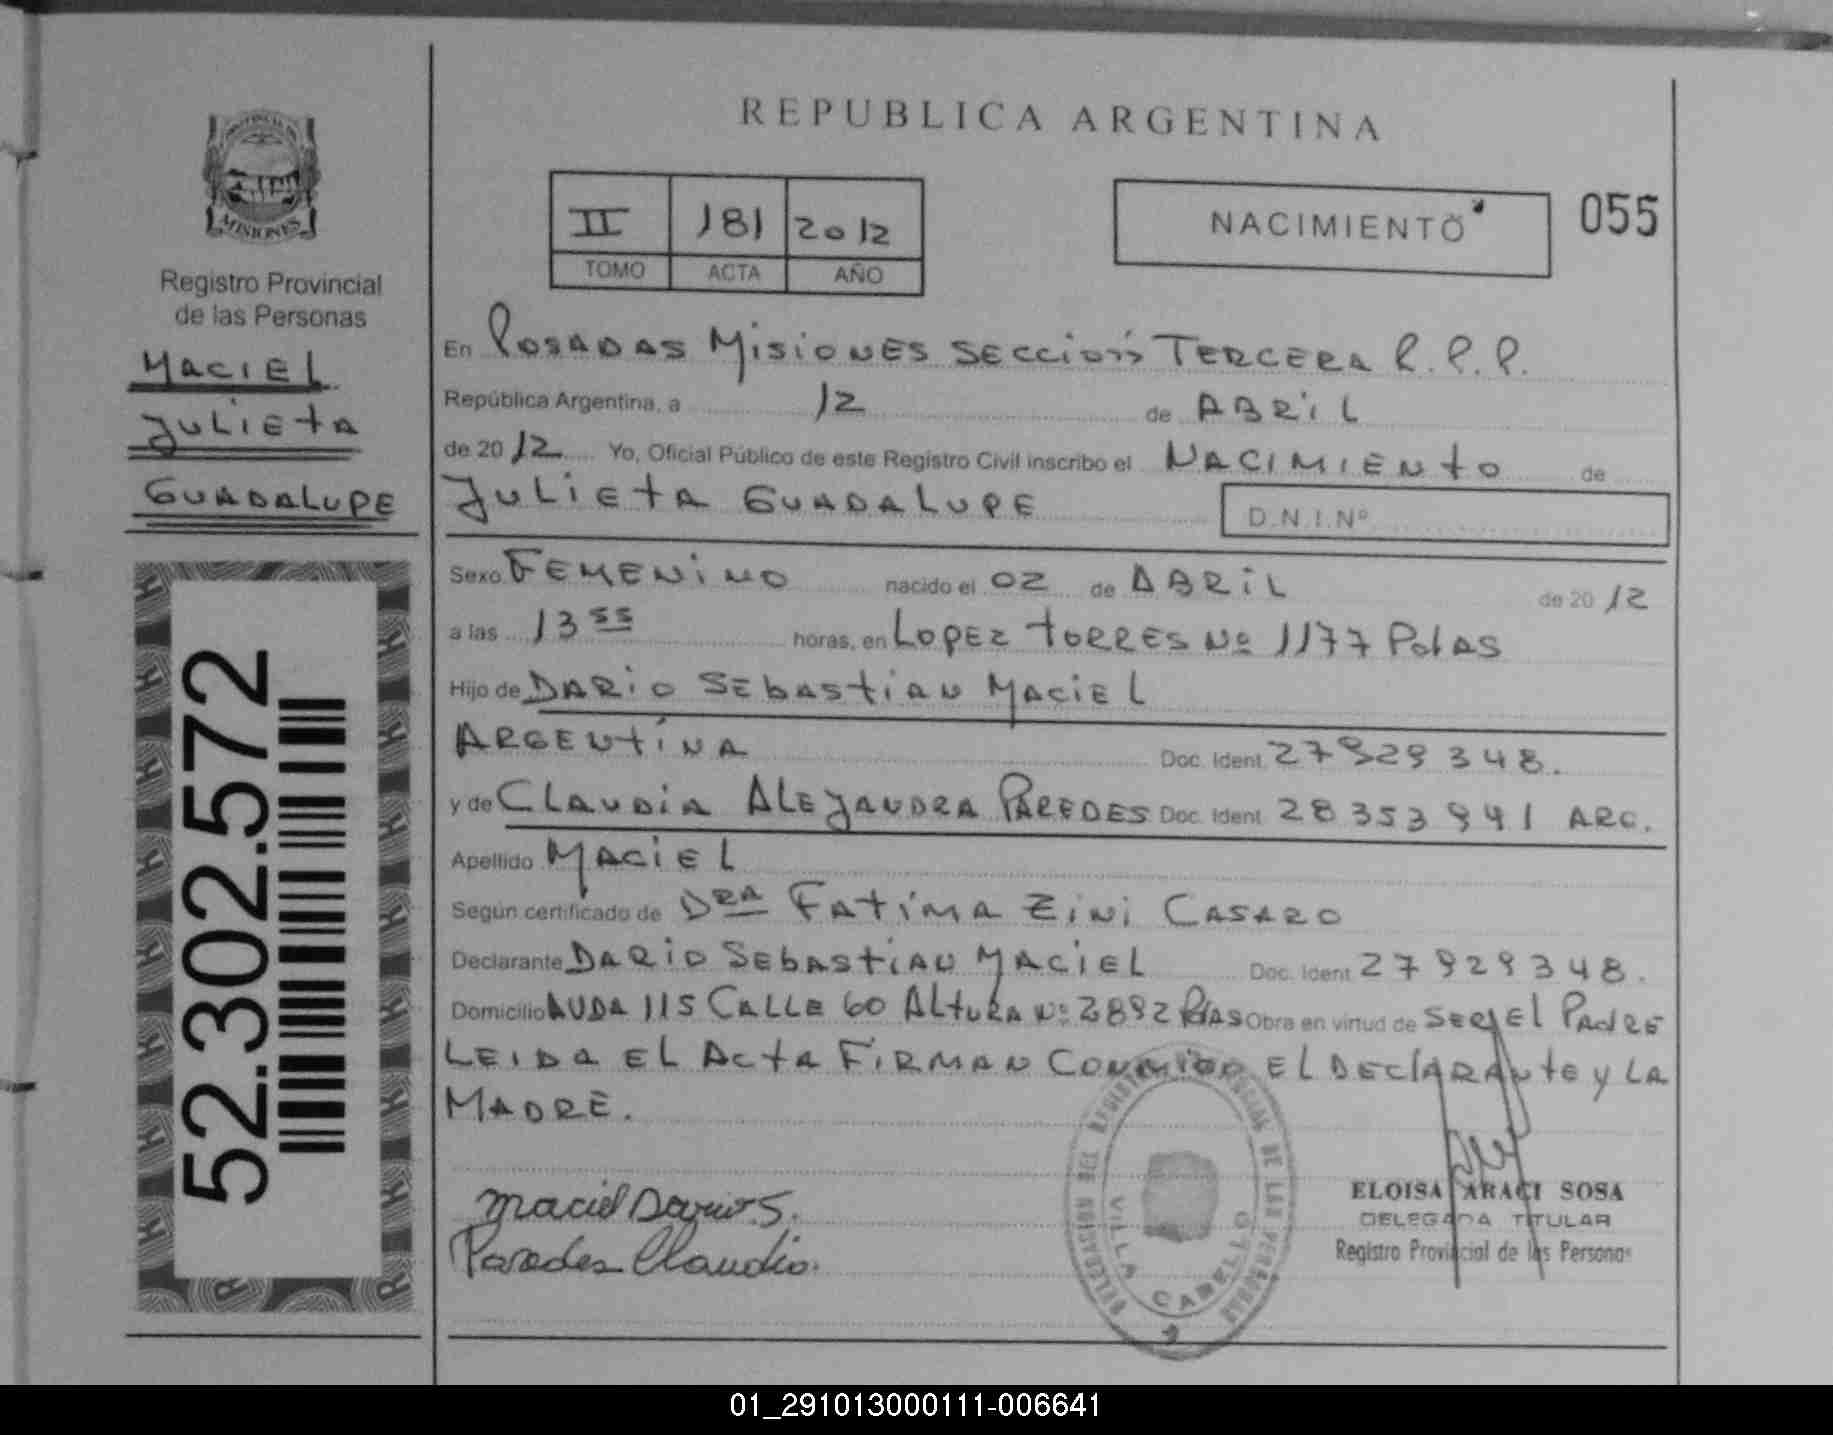 REPUBLICA ARGENTINA
PROVINCIA DE
MISIONES
Registro Provincial
de las Personas
MACIEL
JULIETA
GUADALUPE
52.302.572
II 181 2012
TOMO ACTA AÑO
NACIMIENTO
055
En POSADAS MISIONES SECCIÓN TERCERA R.P.P.
República Argentina, a 12 de ABRIL
de 2012 Yo, Oficial Público de este Registro Civil inscribo el NACIMIENTO de
JULIETA GUADALUPE D.N.I.Nº
Sexo FEMENINO nacido el 02 de ABRIL de 2012
a las 13 55 horas, en LOPEZ TORRES Nº 1177 PDAS
Hijo de DARIO SEBASTIAN MACIEL
ARGENTINA Doc. Ident. 27929348.
y de CLAUDIA ALEJANDRA PAREDES Doc. Ident. 28353941 ARG.
Apellido MACIEL
Según certificado de DRA FATIMA ZINI CASARO
Declarante DARIO SEBASTIAN MACIEL Doc. Ident. 27929348.
Domicilio AVDA 115 CALLE 60 ALTURA Nº 2892 PDAS Obra en virtud de SER EL PADRE
LEIDA EL ACTA FIRMAN CONMIGO EL DECLARANTE Y LA
MADRE.
Maciel Dario S.
Paredes Claudia.
DELEGACION DEL REGISTRO PROVINCIAL DE LAS PERSONAS
VILLA CABELLO
ELOISA ARACI SOSA
DELEGADA TITULAR
Registro Provincial de las Personas
01_291013000111-006641